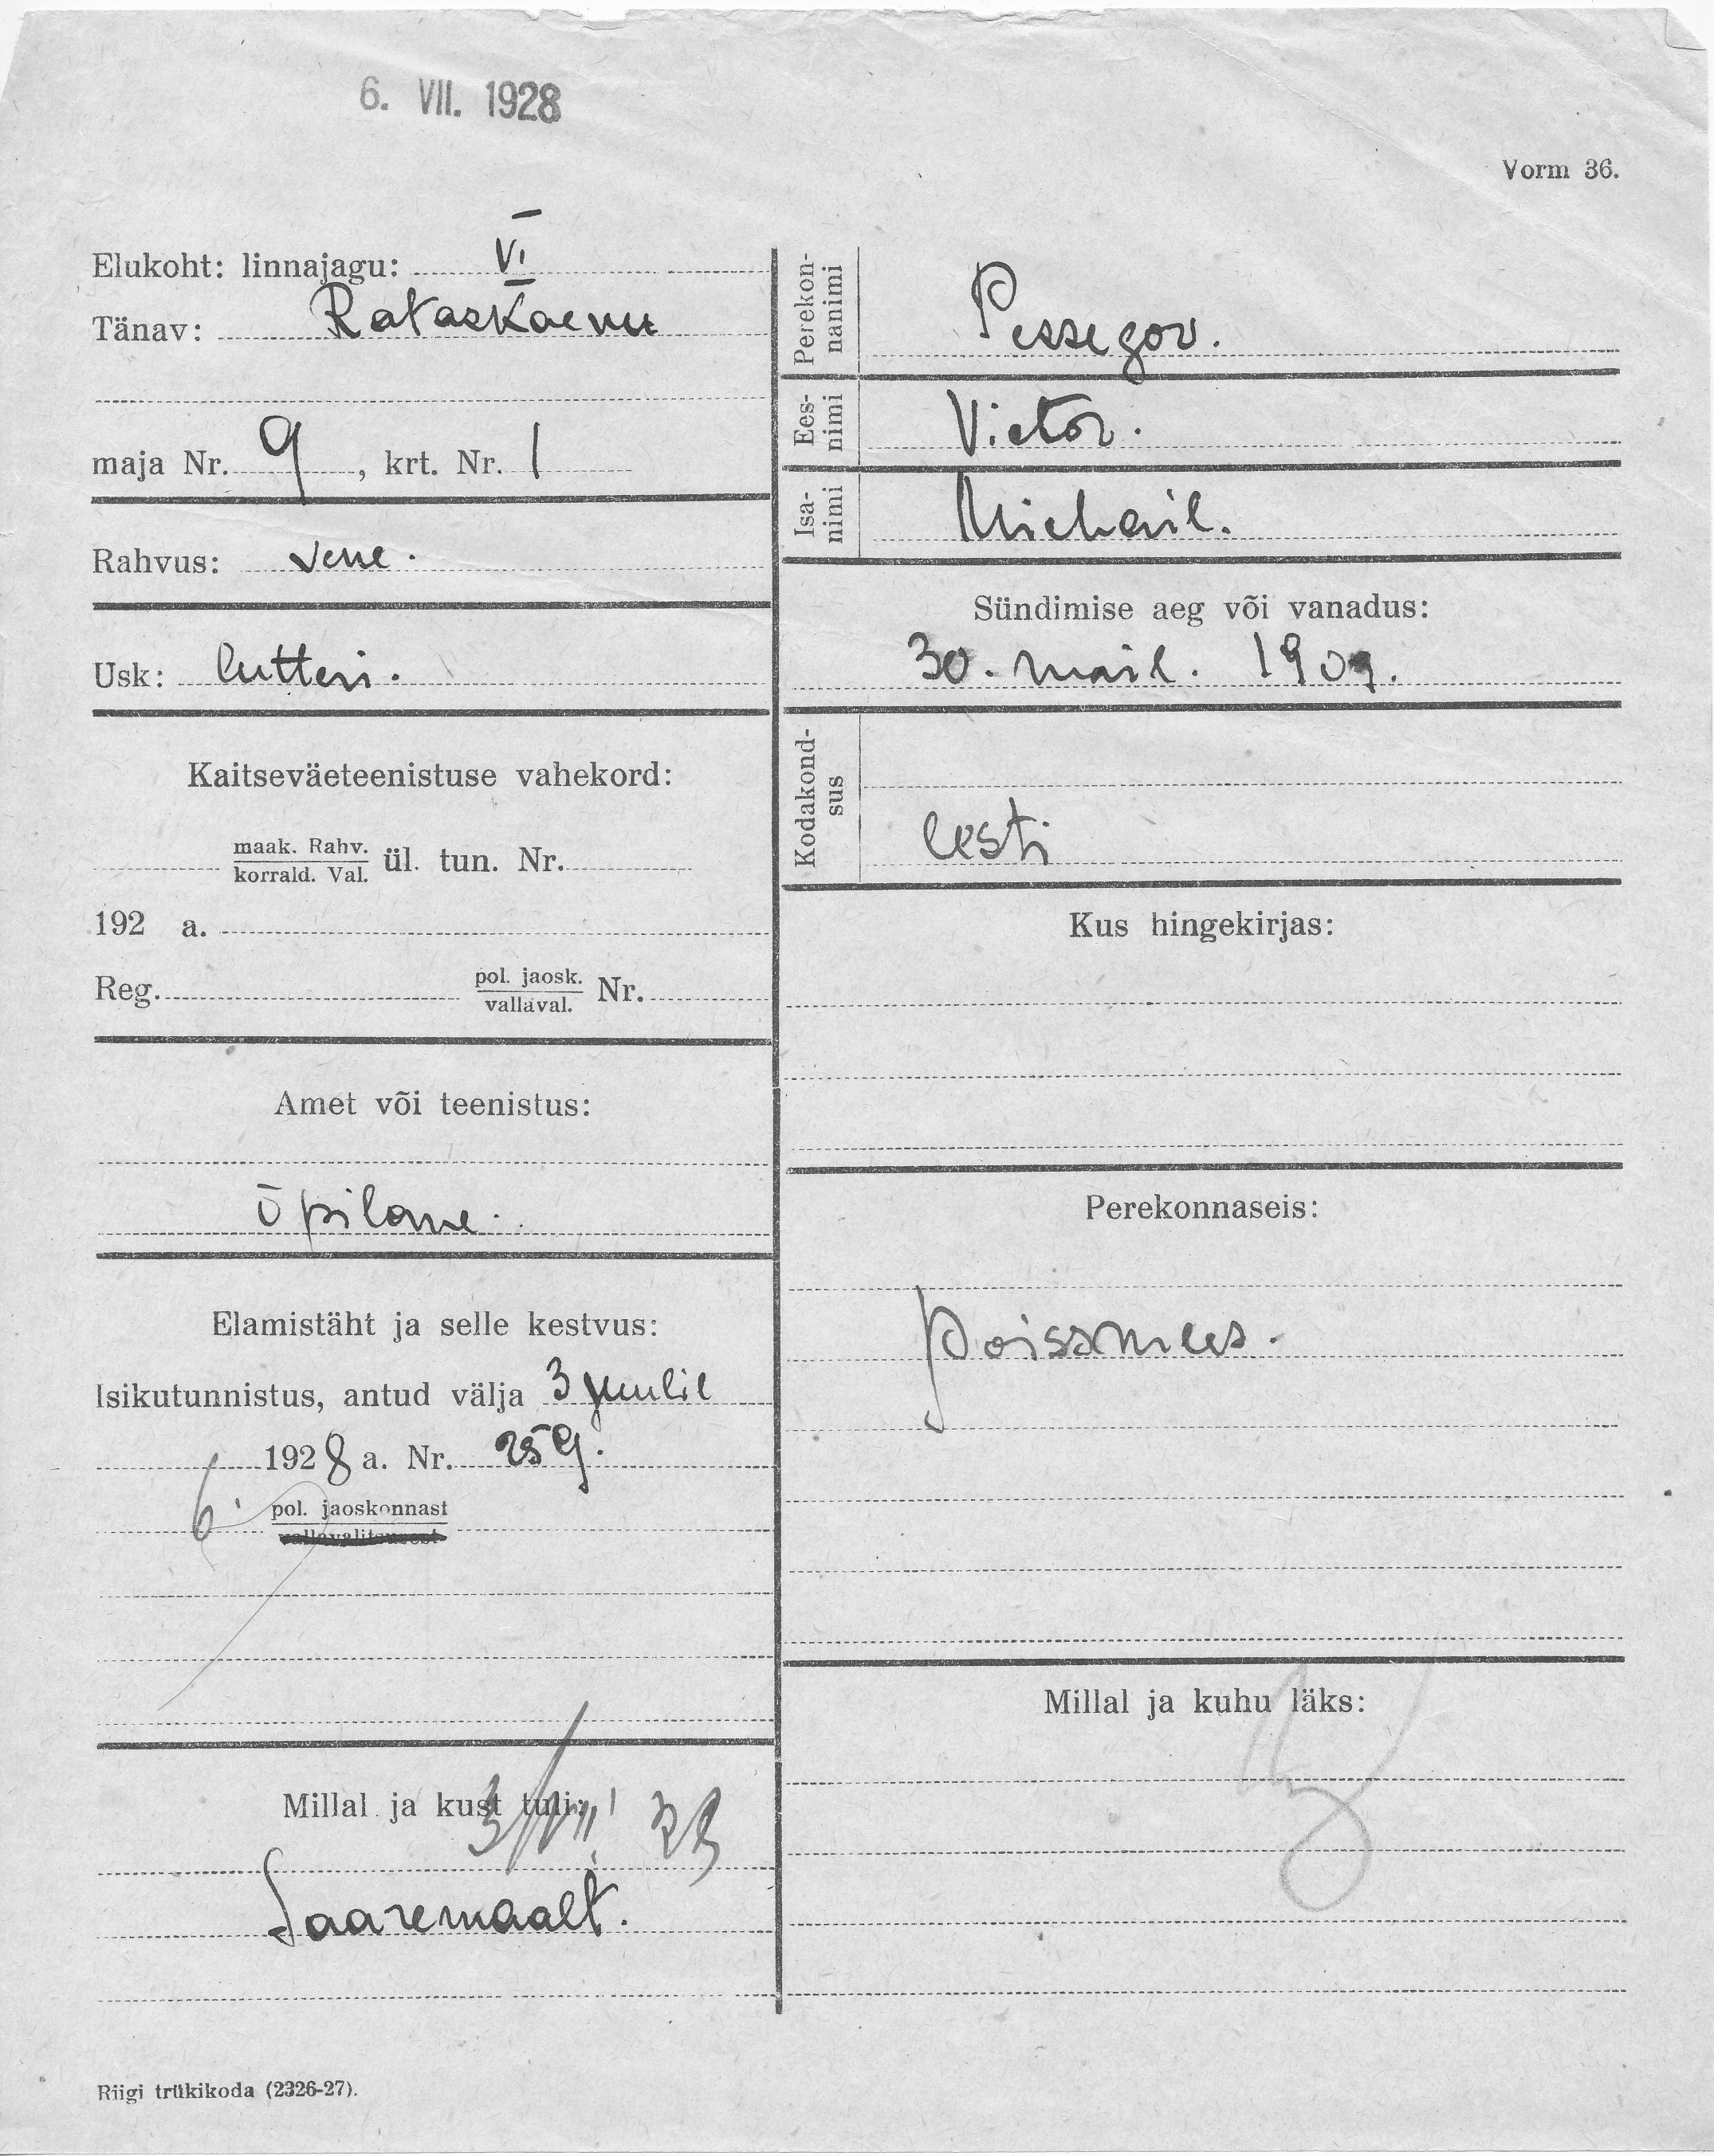 6. VII. 1928
Vorm 36.
Elukoht: linnajagu: VI
Tänav: Rataskaevu
maja Nr. 9, krt. Nr. 1
Rahvus: vene.
Usk: lutteri.
Kaitseväeteenistuse vahekord:
maak. Rahv.
korrald. Val. ül. tun. Nr.
192 a.
Reg. pol. jaosk. Nr.
vallaval.
Amet või teenistus:
õpilane.
Elamistäht ja selle kestvus:
Isikutunnistus, antud välja 3 juulil
1928 a. Nr. 259.
6. pol. jaoskonnast
vallavalitsusest
Millal ja kust tuli:
3/VII 28
Saaremaalt.
Riigi trükikoda (2326-27).
Perekon-
nanimi
Pessegov.
Ees-
nimi
Victor.
Isa-
nimi
Michail.
Sündimise aeg või vanadus:
30. mail. 1909.
Kodakond-
sus
eesti
Kus hingekirjas:
Perekonnaseis:
poissmees.
Millal ja kuhu läks: